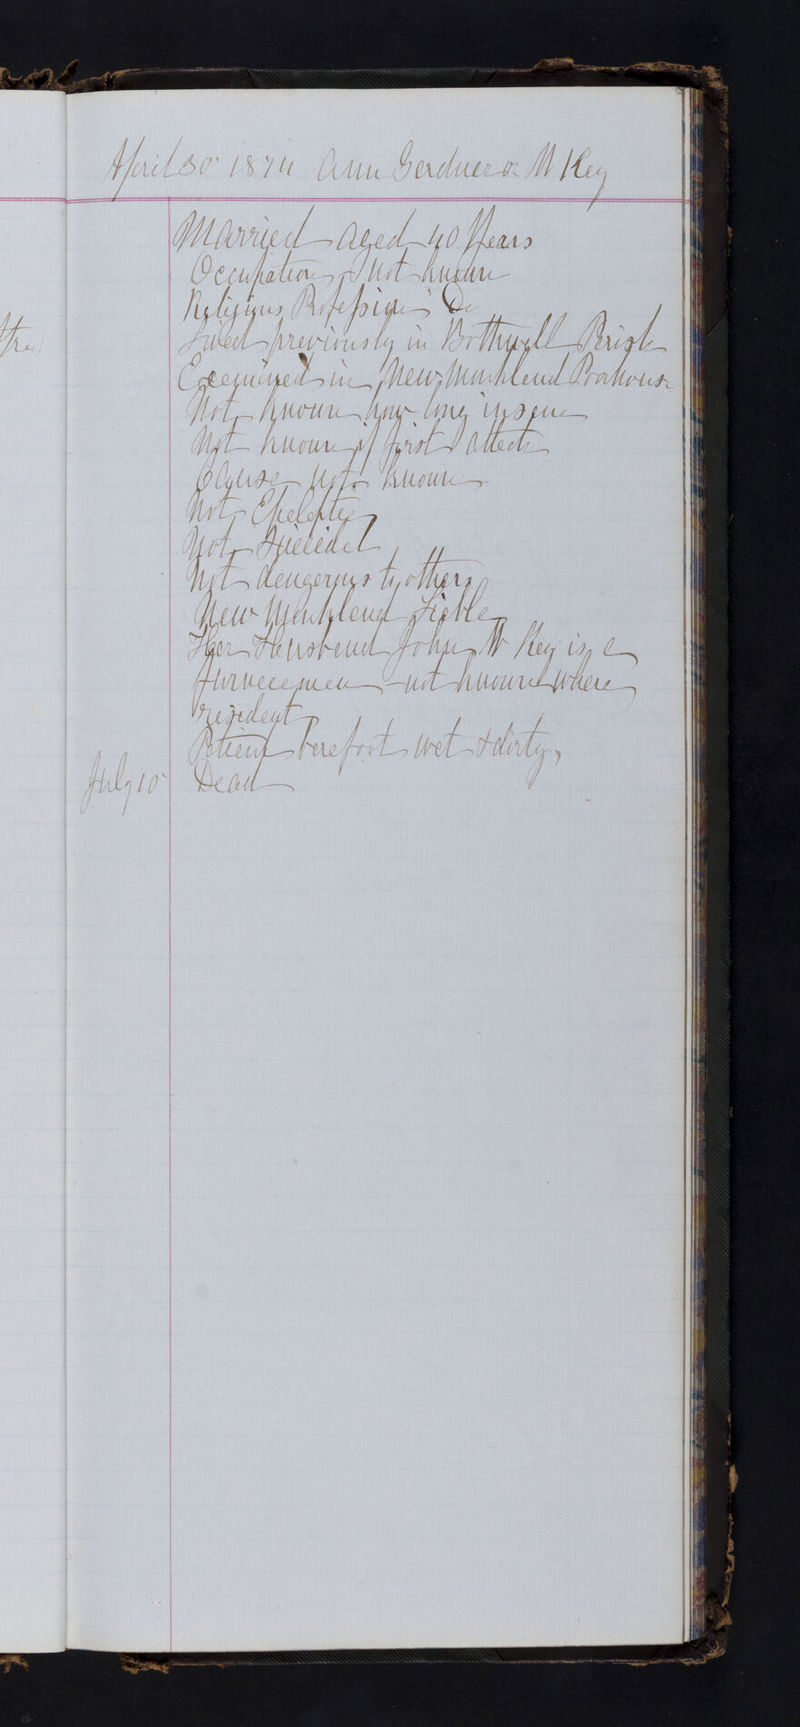 April 30 1874 Ann Gardner or McKey
Married aged 40 Years
Occupation Not known
Religious Profession Do
Lived previously in Bothwell Parish
Examined in New Monkland Poorhouse
Not known how long insane
Not known if first attack
Cause not known
Not Epileptic
Not Suicidal
Not dangerous to others
New Monkland Liable
Her Husband John McKey is a
furnaceman - not known where
resident
Patient barefoot wet & dirty,
July 10 Dead